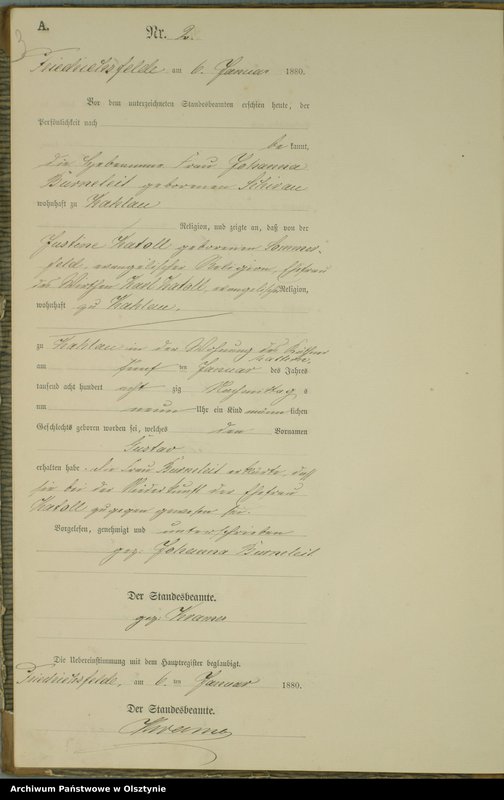 A.
Nr. 2.
Friedrichsfelde am 6. Januar 1880.
Vor dem unterzeichneten Standesbeamten erschien heute, der
Persönlichkeit nach
be kannt,
die Hebamme Frau Johanna
Burneleit geborenen
wohnhaft zu Kahlau
Religion, und zeigte an, daß von der
Justine Katoll geborenen Sommer-
feld, evangelischer Religion, Ehefrau
des Wirthen Karl Katoll, evangelischer Religion,
wohnhaft zu Kahlau.
zu Kahlau in der Wohnung des
am fünf ten Januar des Jahres
tausend acht hundert acht zig Nachmittag s
um neun Uhr ein Kind männ lichen
Geschlechts geboren worden sei, welches den Vornamen
Gustav
erhalten habe. Die Frau Burneleit erklärte, daß
sie bei der Niederkunft der Ehefrau
Katoll zugegen gewesen sei.
Vorgelesen, genehmigt und unterschrieben
gez. Johanna Burneleit
Der Standesbeamte.
gez. Krame
Die Uebereinstimmung mit dem Hauptregister beglaubigt.
Friedrichsfelde, am 6. ten Januar 1880.
Der Standesbeamte.
Krame
Archiwum Państwowe w Olsztynie